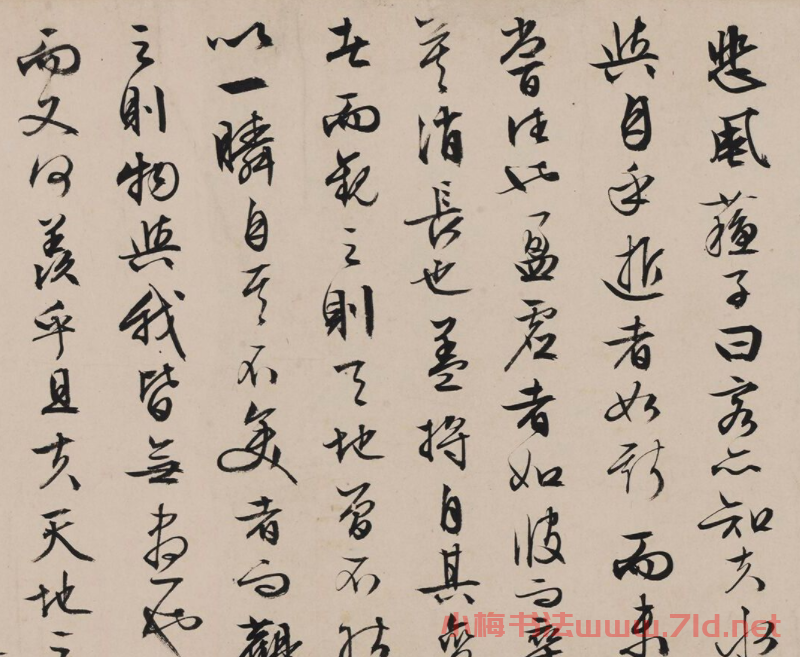 悲風蘇子曰客亦知夫水
與月乎逝者如斯而未
嘗往也盈虛者如彼而卒
莫消長也蓋將自其變
者而觀之則天地曾不能
以一瞬自其不變者而觀
之則物與我皆無盡也
而又何羨乎且夫天地之
小梅书法www.7ld.net